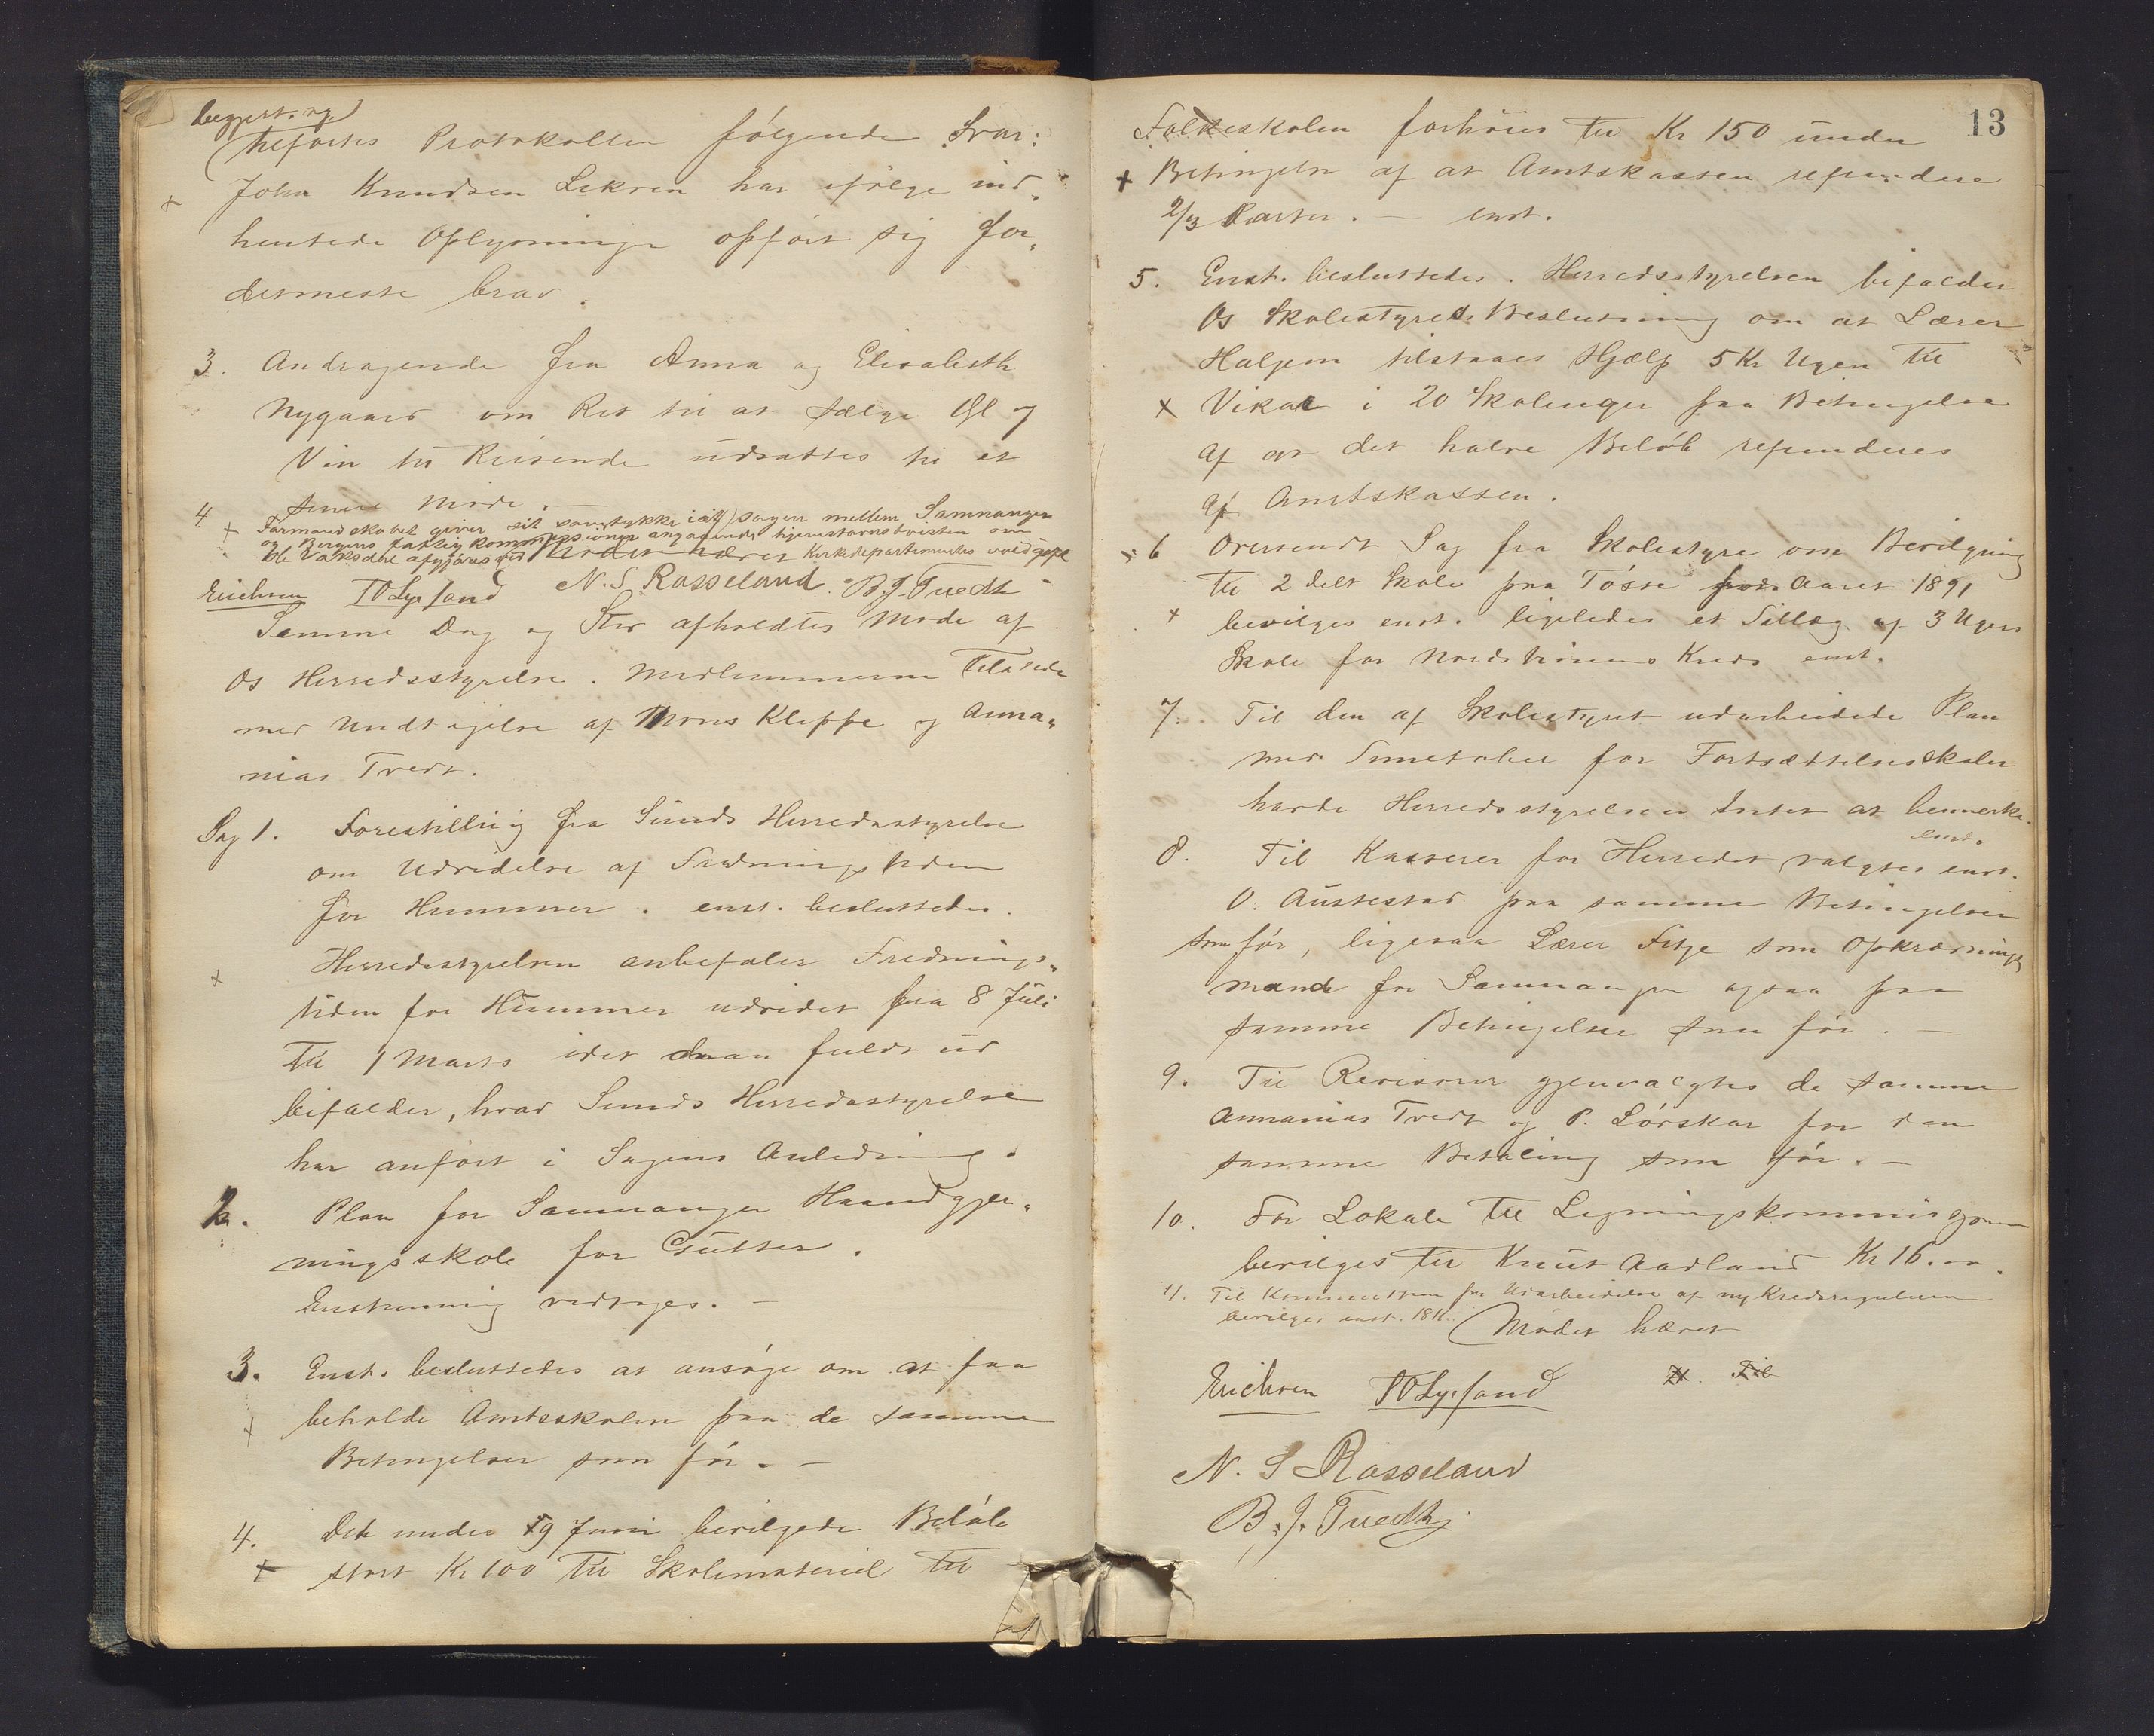 begjert. og
tilførtes Protokollen følgende Svar:
John Knudsen Lekven har ifølge ind„
hentede Oplysninger opført sig for„
detmeste brav.
3. Andragende fra Anna og Elisabeth
Nygaard om Ret til at sælge Øl og
Vin til Reisende udsattes til et
senere Møde. —
4 Formandskabet giver sit samtykke i at sagen mellem Samnanger
og Bergens fattigkommissioner angaaende hjemstavnstvisten om
Ole Vaksdal afgjøres ved Kirkedepartementets voldgift
Mødet hævet
Erichsen T O Lysfand N. S. Rosseland. B. J. Tvedth
Samme Dag og Sted afholdtes Møde af
Os Herredsstyrelse. Medlemmerne Tilstede
med Undtagelse af Mons Kleppe og Anna„
nias Tvedt.
Sag 1. Forestilling fra Sunds Herredsstyrelse
om Udvidelse af Fredningstiden
for Hummer. enst. besluttedes.
Herredsstyrelsen anbefaler Frednings„
tiden for Hummer udvidet fra 8 Juli
til 1 Marts idet man fuldt ud
bifalder, hvad Sunds Herredsstyrelse
har anført i Sagens Anledning.
2. Plan for Samnanger Haandgjer„
ningsskole for Gutter.
Enstemmig vedtages. —
3. Enst. besluttedes at ansøge om at faa
beholde Amtsskolen paa de samme
Betingelser som før. —
4. Det under 19 Juni bevilgede Beløb
stort Kr 100 til Skolemateriel til
13
Folkeskolen forhöies til Kr 150 under
Betingelse af at Amtskassen refundere
2/3 Parter. — enst.
5. Enst. besluttedes. Herredsstyrelsen bifalder
Os Skolestyres Beslutning om at Lærer
Haljem tilstaaes Hjælp 5 Kr Ugen til
Vikar i 20 Skoleuger paa Betingelse
af at det halve Beløb refunderes
af Amtskassen.
6 Oversendt Sag fra Skolestyre om Bevilgning
til 2 delt Skole paa Tøsse for Aaret 1891
bevilges enst. ligeledes et Tillæg af 3 Ugers
Skole for Nordstrønens Kreds enst.
7. Til den af Skolestyret udarbeidede Plan
med Timetabel for Fortsættelsesskolen
havde Herredsstyrelsen Intet at bemerke.
enst.
8. Til Kasserer for Herredet valgtes enst.
O. Austestad paa samme Betingelser
som før, ligesaa Lærer Fitje som Opkrævnings„
mand for Samnanger ogsaa paa
samme Betingelser som før. —
9. Til Revisorer gjenvalgtes de samme
Annanias Tvedt og P. Lørskar for den
samme Betaling som før. —
10. For Lokale til Ligningskommisjonen
bevilges til Knut Aadland Kr 16.00.
11. Til Kommitteen for Udarbeidelse af ny Kredsregulering
bevilges enst. 18 K..
Mødet hævet
Erichsen T O Lysfand 11. Til
N. S Rosseland
B. J. Tvedth